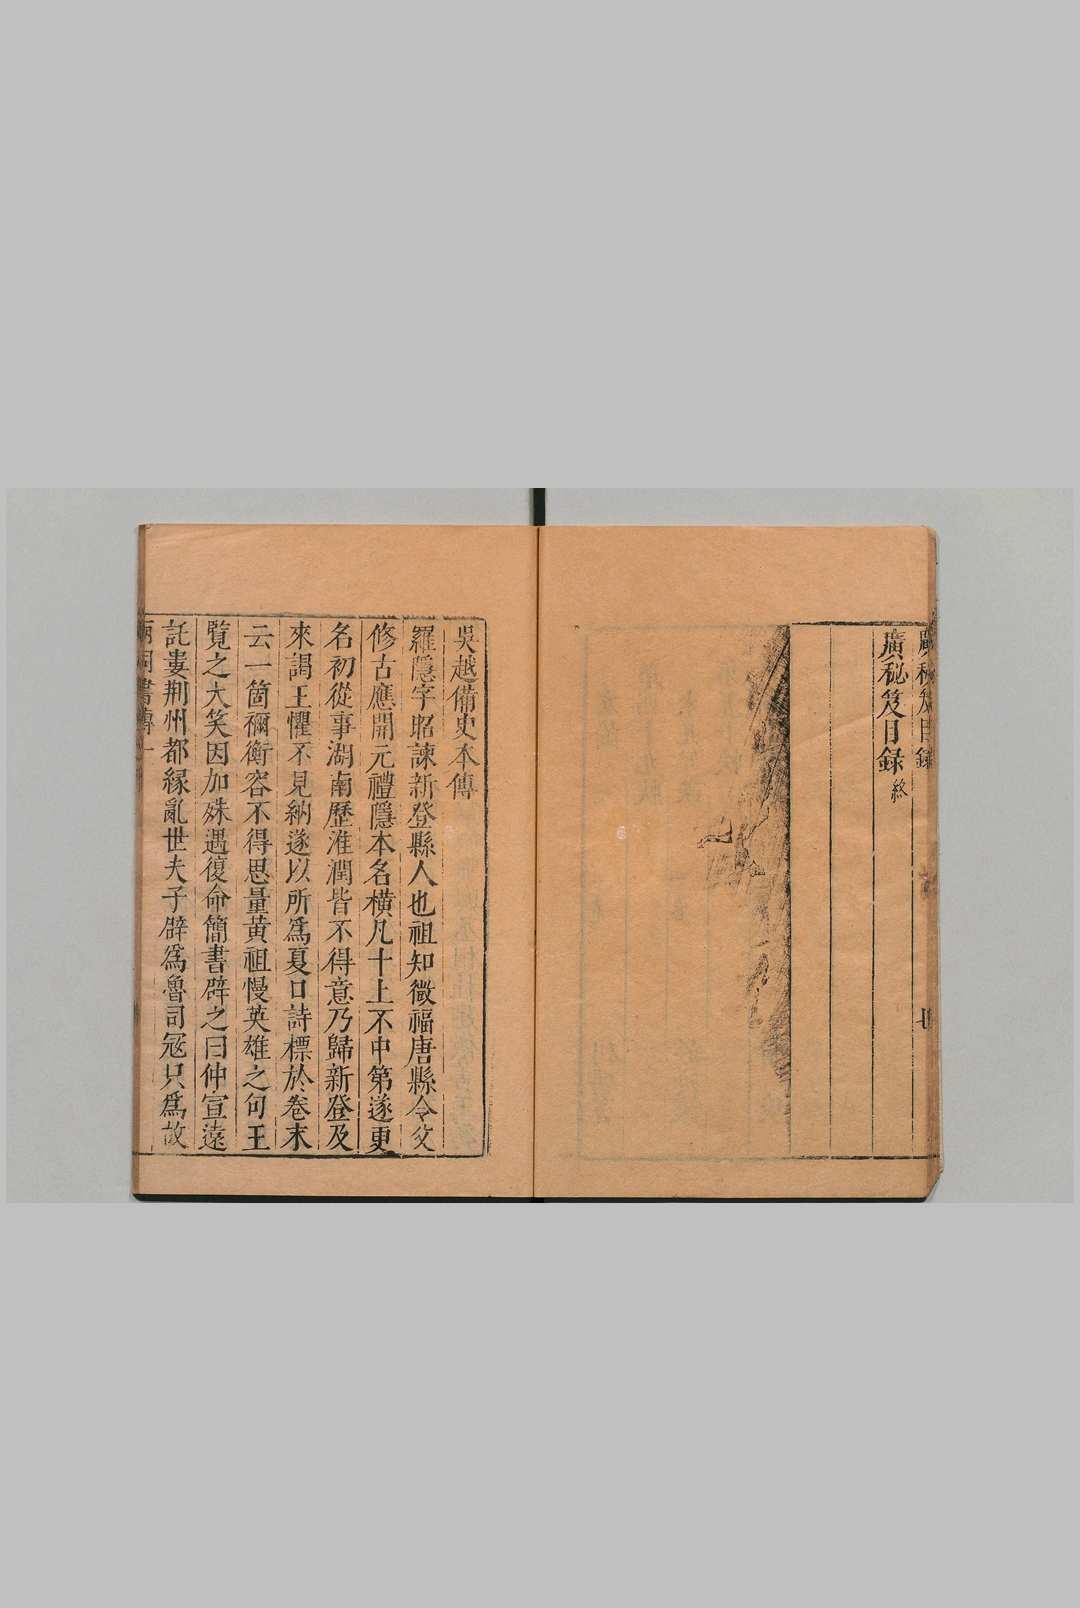 廣秘笈目録
廣秘笈目録終
吳越備史本傳
羅隱字昭諫新登縣人也祖知微福唐縣令父
修古應開元禮隱本名橫凡十上不中第遂更
名初從事湖南歷淮潤皆不得意乃歸新登及
來謁王懼不見納遂以所爲夏口詩標於卷末
云一箇禰衡容不得思量黃祖慢英雄之句王
覽之大笑因加殊遇復命簡書辟之曰仲宣遠
託婁荆州都緣亂世夫子辟爲魯司冦只爲故
兩同書傳一